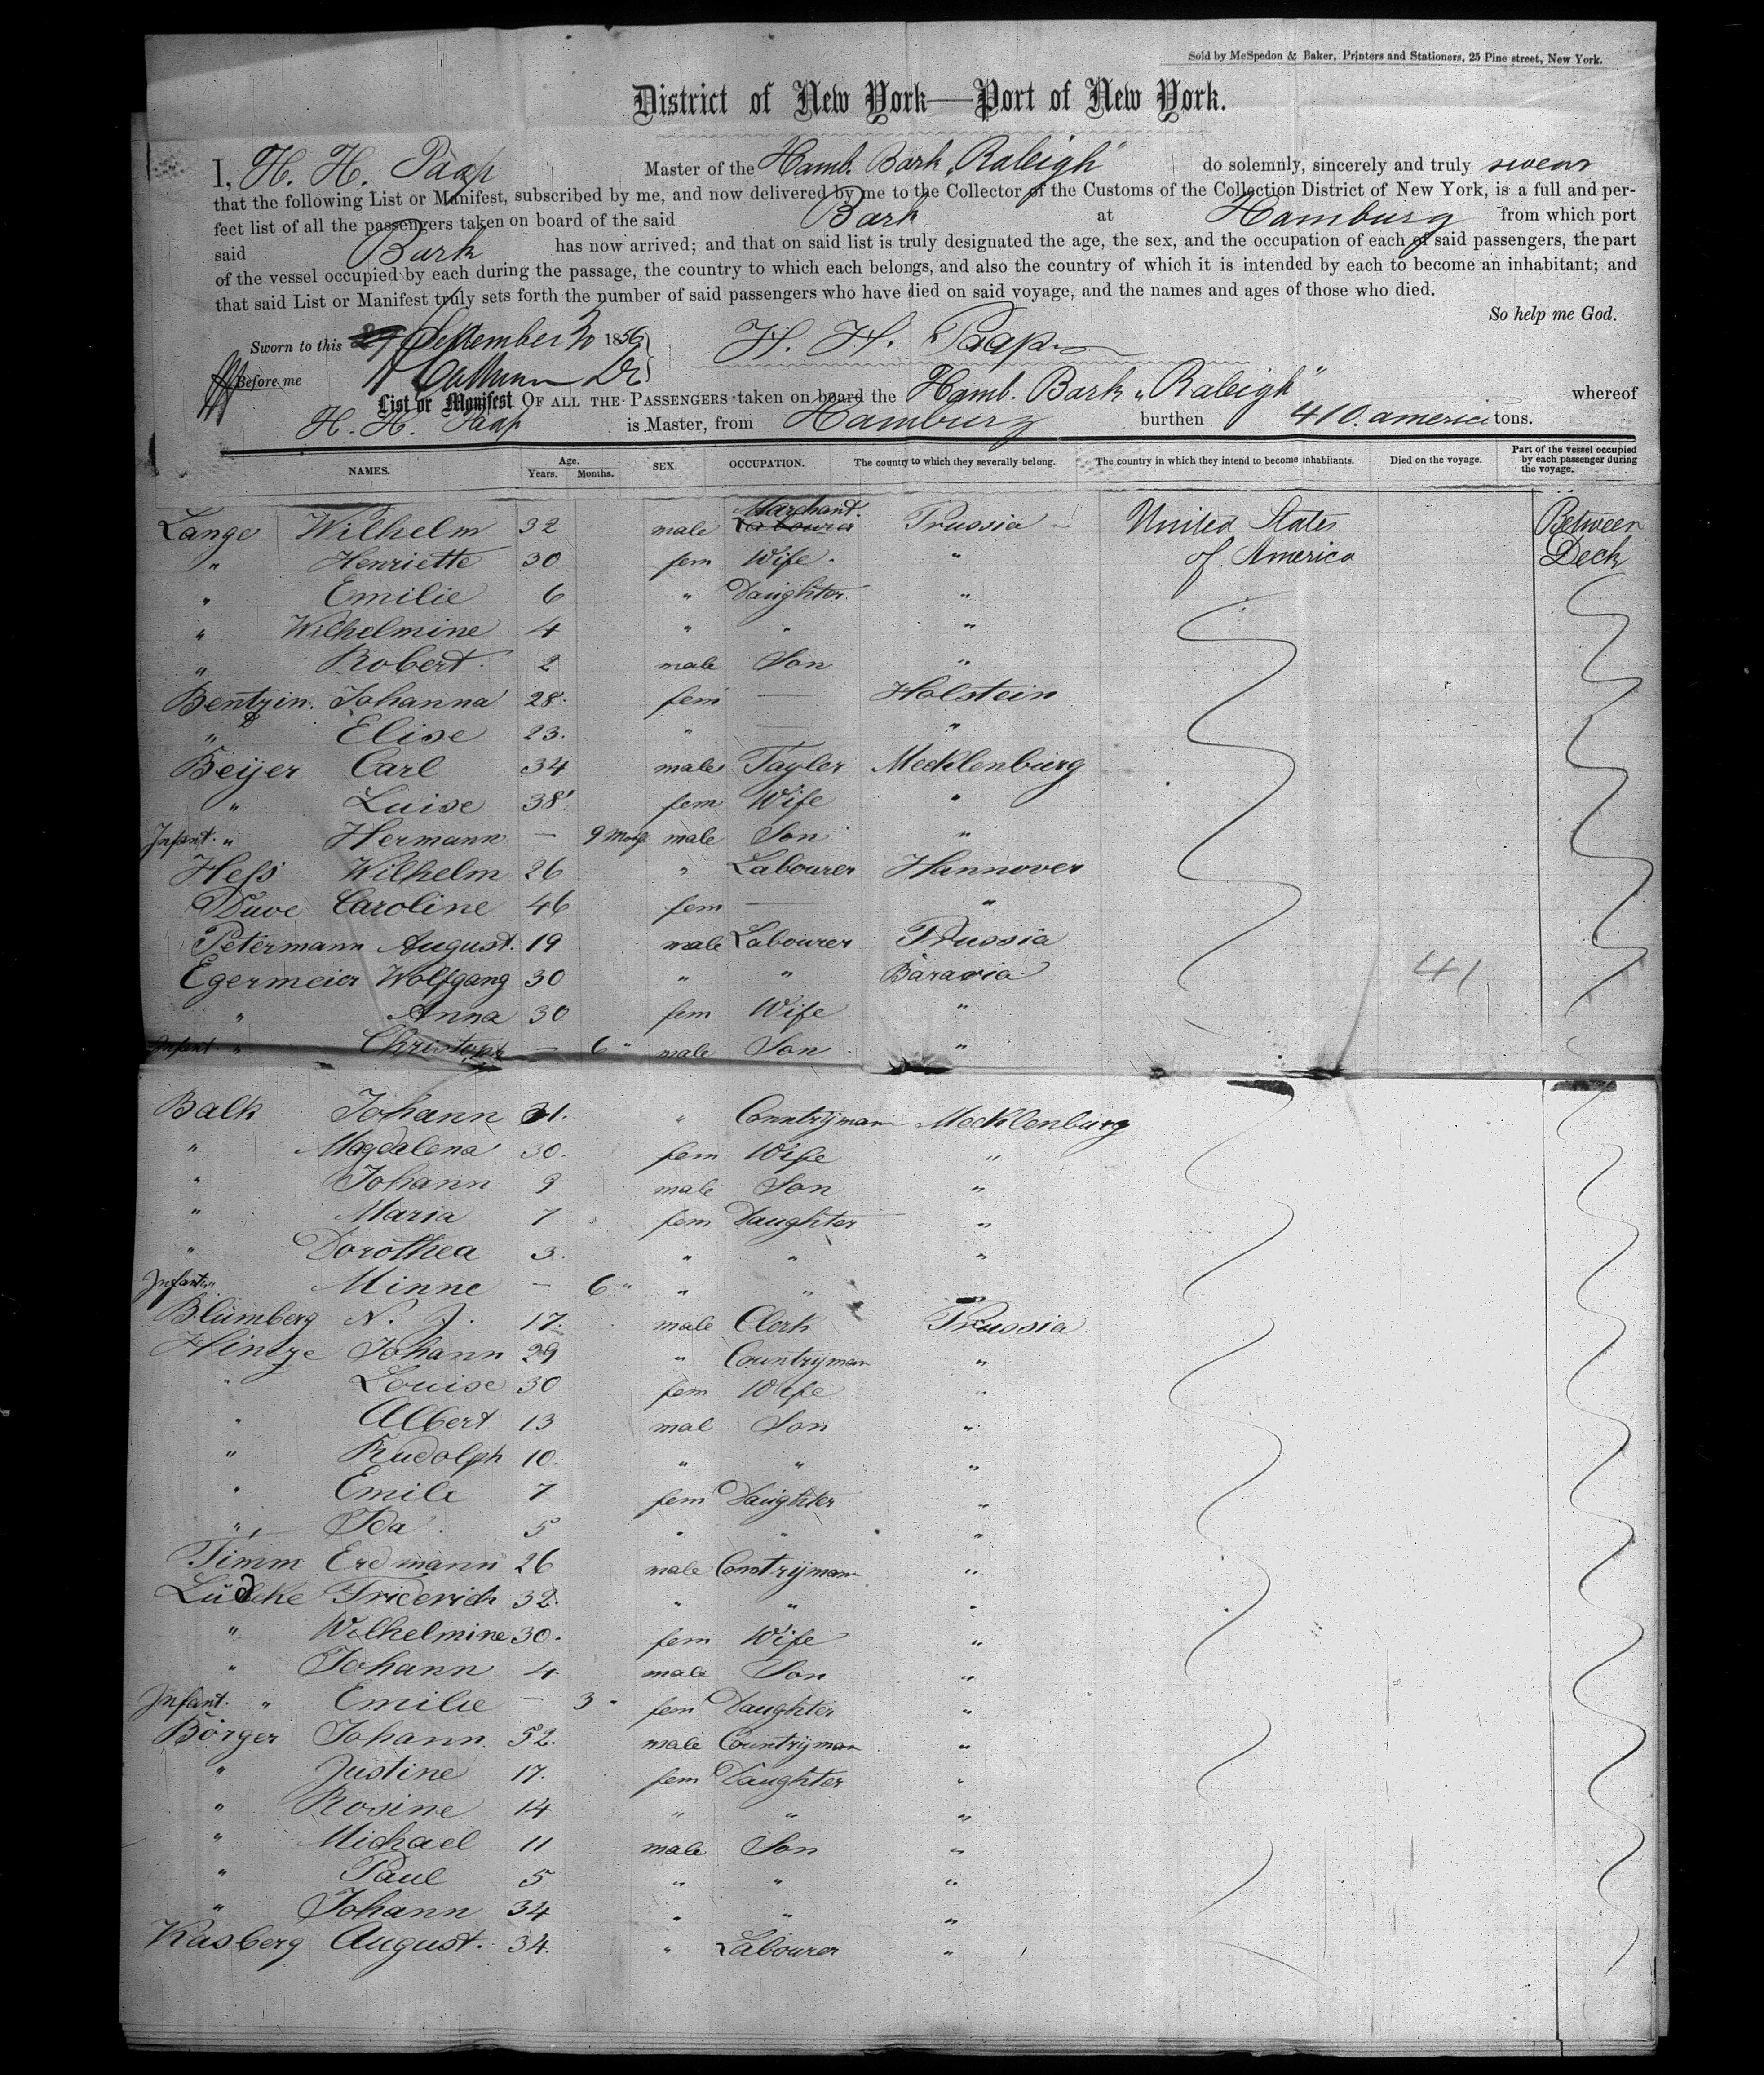 Sold by McSpedon & Baker, Printers and Stationers, 25 Pine street, New York.
District of New York—Port of New York.
I, H. H. Paap Master of the Hamb. Bark „Raleigh" do solemnly, sincerely and truly swear
that the following List or Manifest, subscribed by me, and now delivered by me to the Collector of the Customs of the Collection District of New York, is a full and per-
fect list of all the passengers taken on board of the said Bark at Hamburg from which port
said Bark has now arrived; and that on said list is truly designated the age, the sex, and the occupation of each of said passengers, the part
of the vessel occupied by each during the passage, the country to which each belongs, and also the country of which it is intended by each to become an inhabitant; and
that said List or Manifest truly sets forth the number of said passengers who have died on said voyage, and the names and ages of those who died.
So help me God.
Sworn to this September 1856 H. H. Paap
Before me
List or Manifest OF ALL THE PASSENGERS taken on board the Hamb. Bark „Raleigh" whereof
H. H. Paap is Master, from Hamburg burthen 410. americ tons.
NAMES. Age. Years. Months. SEX. OCCUPATION. The country to which they severally belong. The country in which they intend to become inhabitants. Died on the voyage. Part of the vessel occupied by each passenger during the voyage.
Lange Wilhelm 32 male Marchant. Labourer Prussia United States Between
" Henriette 30 fem Wife. " of America Deck
" Emilie 6 " Daughter "
" Wilhelmine 4 " " "
" Robert. 2 male Son "
Bentzin. Johanna 28. fem — Holstein
" Elise 23. " — "
Beijer Carl 34 male Tayler Mecklenburg
" Luise 38 fem Wife "
Infant. " Hermann — 9 male Son "
Hess Wilhelm 26 " Labourer Hannover
Duve Caroline 46 fem — "
Petermann August. 19 male Labourer Prussia
Egermeier Wolfgang 30 " " Baravia 41
" Anna 30 fem Wife "
Infant. " Christoph — 6 " male Son "
Balk Johann 31. " Countrijman Mecklenburg
" Magdalena 30. fem Wife "
" Johann 9 male Son "
" Maria 7 fem Daughter "
" Dorothea 3. " " "
Infant " Minne — 6 " " " "
Blümberg N. J. 17. male Clerk Prussia
Hintze Johann 29 " Countrijman "
" Louise 30 fem Wife "
" Albert 13 mal Son "
" Rudolph 10. " " "
" Emile 7 fem Daughter "
" Ida 5 " " "
Timm Erdmann 26 male Conntrijman "
Lüdeke Friderich 32. " " "
" Wilhelmine 30. fem Wife "
" Johann 4 male Son "
Infant. " Emilie — 3 " fem Daughter "
Börger Johann. 52. male Countrijman "
" Justine 17. fem Daughter "
" Rosine 14 " " "
" Michael 11 male Son "
" Paul 5 " " "
" Johann 34 " " "
Kasberg August. 34. " Labourer "